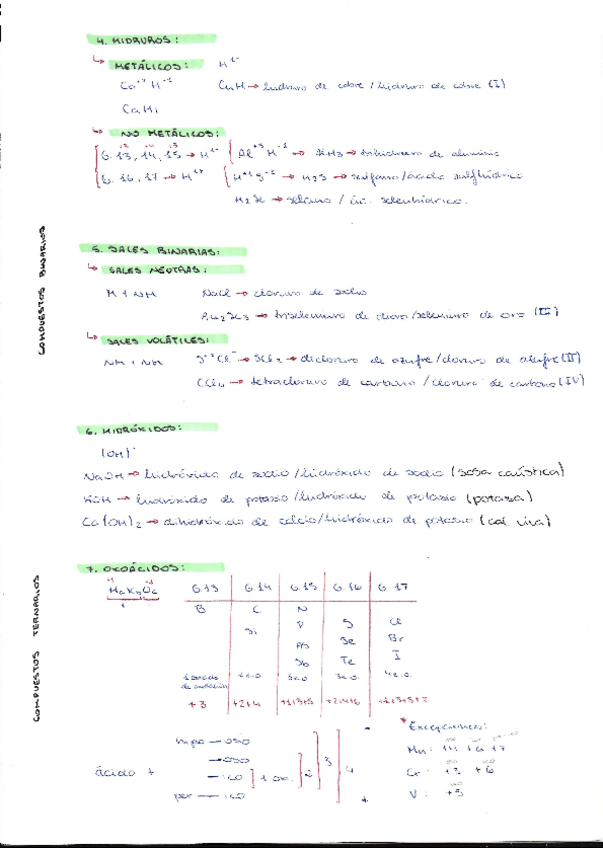 4. HIDRUROS:
METÁLICOS: H⁻¹
Ca⁺² H⁻¹ CuH → hidruro de cobre / hidruro de cobre (I)
CaH₂
NO METÁLICOS:
G. 13, 14, 15 → H⁻¹ Al⁺³ H⁻¹ → AlH3 → trihidruro de aluminio
G. 16, 17 → H⁺¹ H⁺¹ S⁻² → H₂S → sulfano / ácido sulfhídrico
H₂Se → selano / ác. selenhídrico.
COMPUESTOS BINARIOS
5. SALES BINARIAS:
SALES NEUTRAS:
M + NM NaCl → cloruro de sodio
Au₂Se₃ → triseleniuro de dioro / seleniuro de oro (III)
SALES VOLÁTILES:
NM + NM S⁺²Cl⁻ → SCl₂ → dicloruro de azufre / cloruro de azufre (II)
CCl₄ → tetracloruro de carbono / cloruro de carbono (IV)
6. HIDRÓXIDOS:
(OH)⁻
NaOH → hidróxido de sodio / hidróxido de sodio (sosa caústica)
KOH → hidróxido de potasio / hidróxido de potasio (potasa)
Ca(OH)₂ → dihidróxido de calcio / hidróxido de potasio (cal viva)
COMPUESTOS TERNARIOS
7. OXOÁCIDOS:
G.13 G.14 G.15 G.16 G.17
B C N
Si P S Cl
As Se Br
Sb Te I
1 estado de oxidación 2e.o. 3e.o. 3e.o. 4e.o.
+3 +2+4 +1+3+5 +2+4+6 +1+3+5+7
* Excepciones:
hipo — oso Mn: +4 +6 +7
— oso
ácido + — ico 1 ox. 2 3 4 Cr: +3 +6
per — ico V: +5